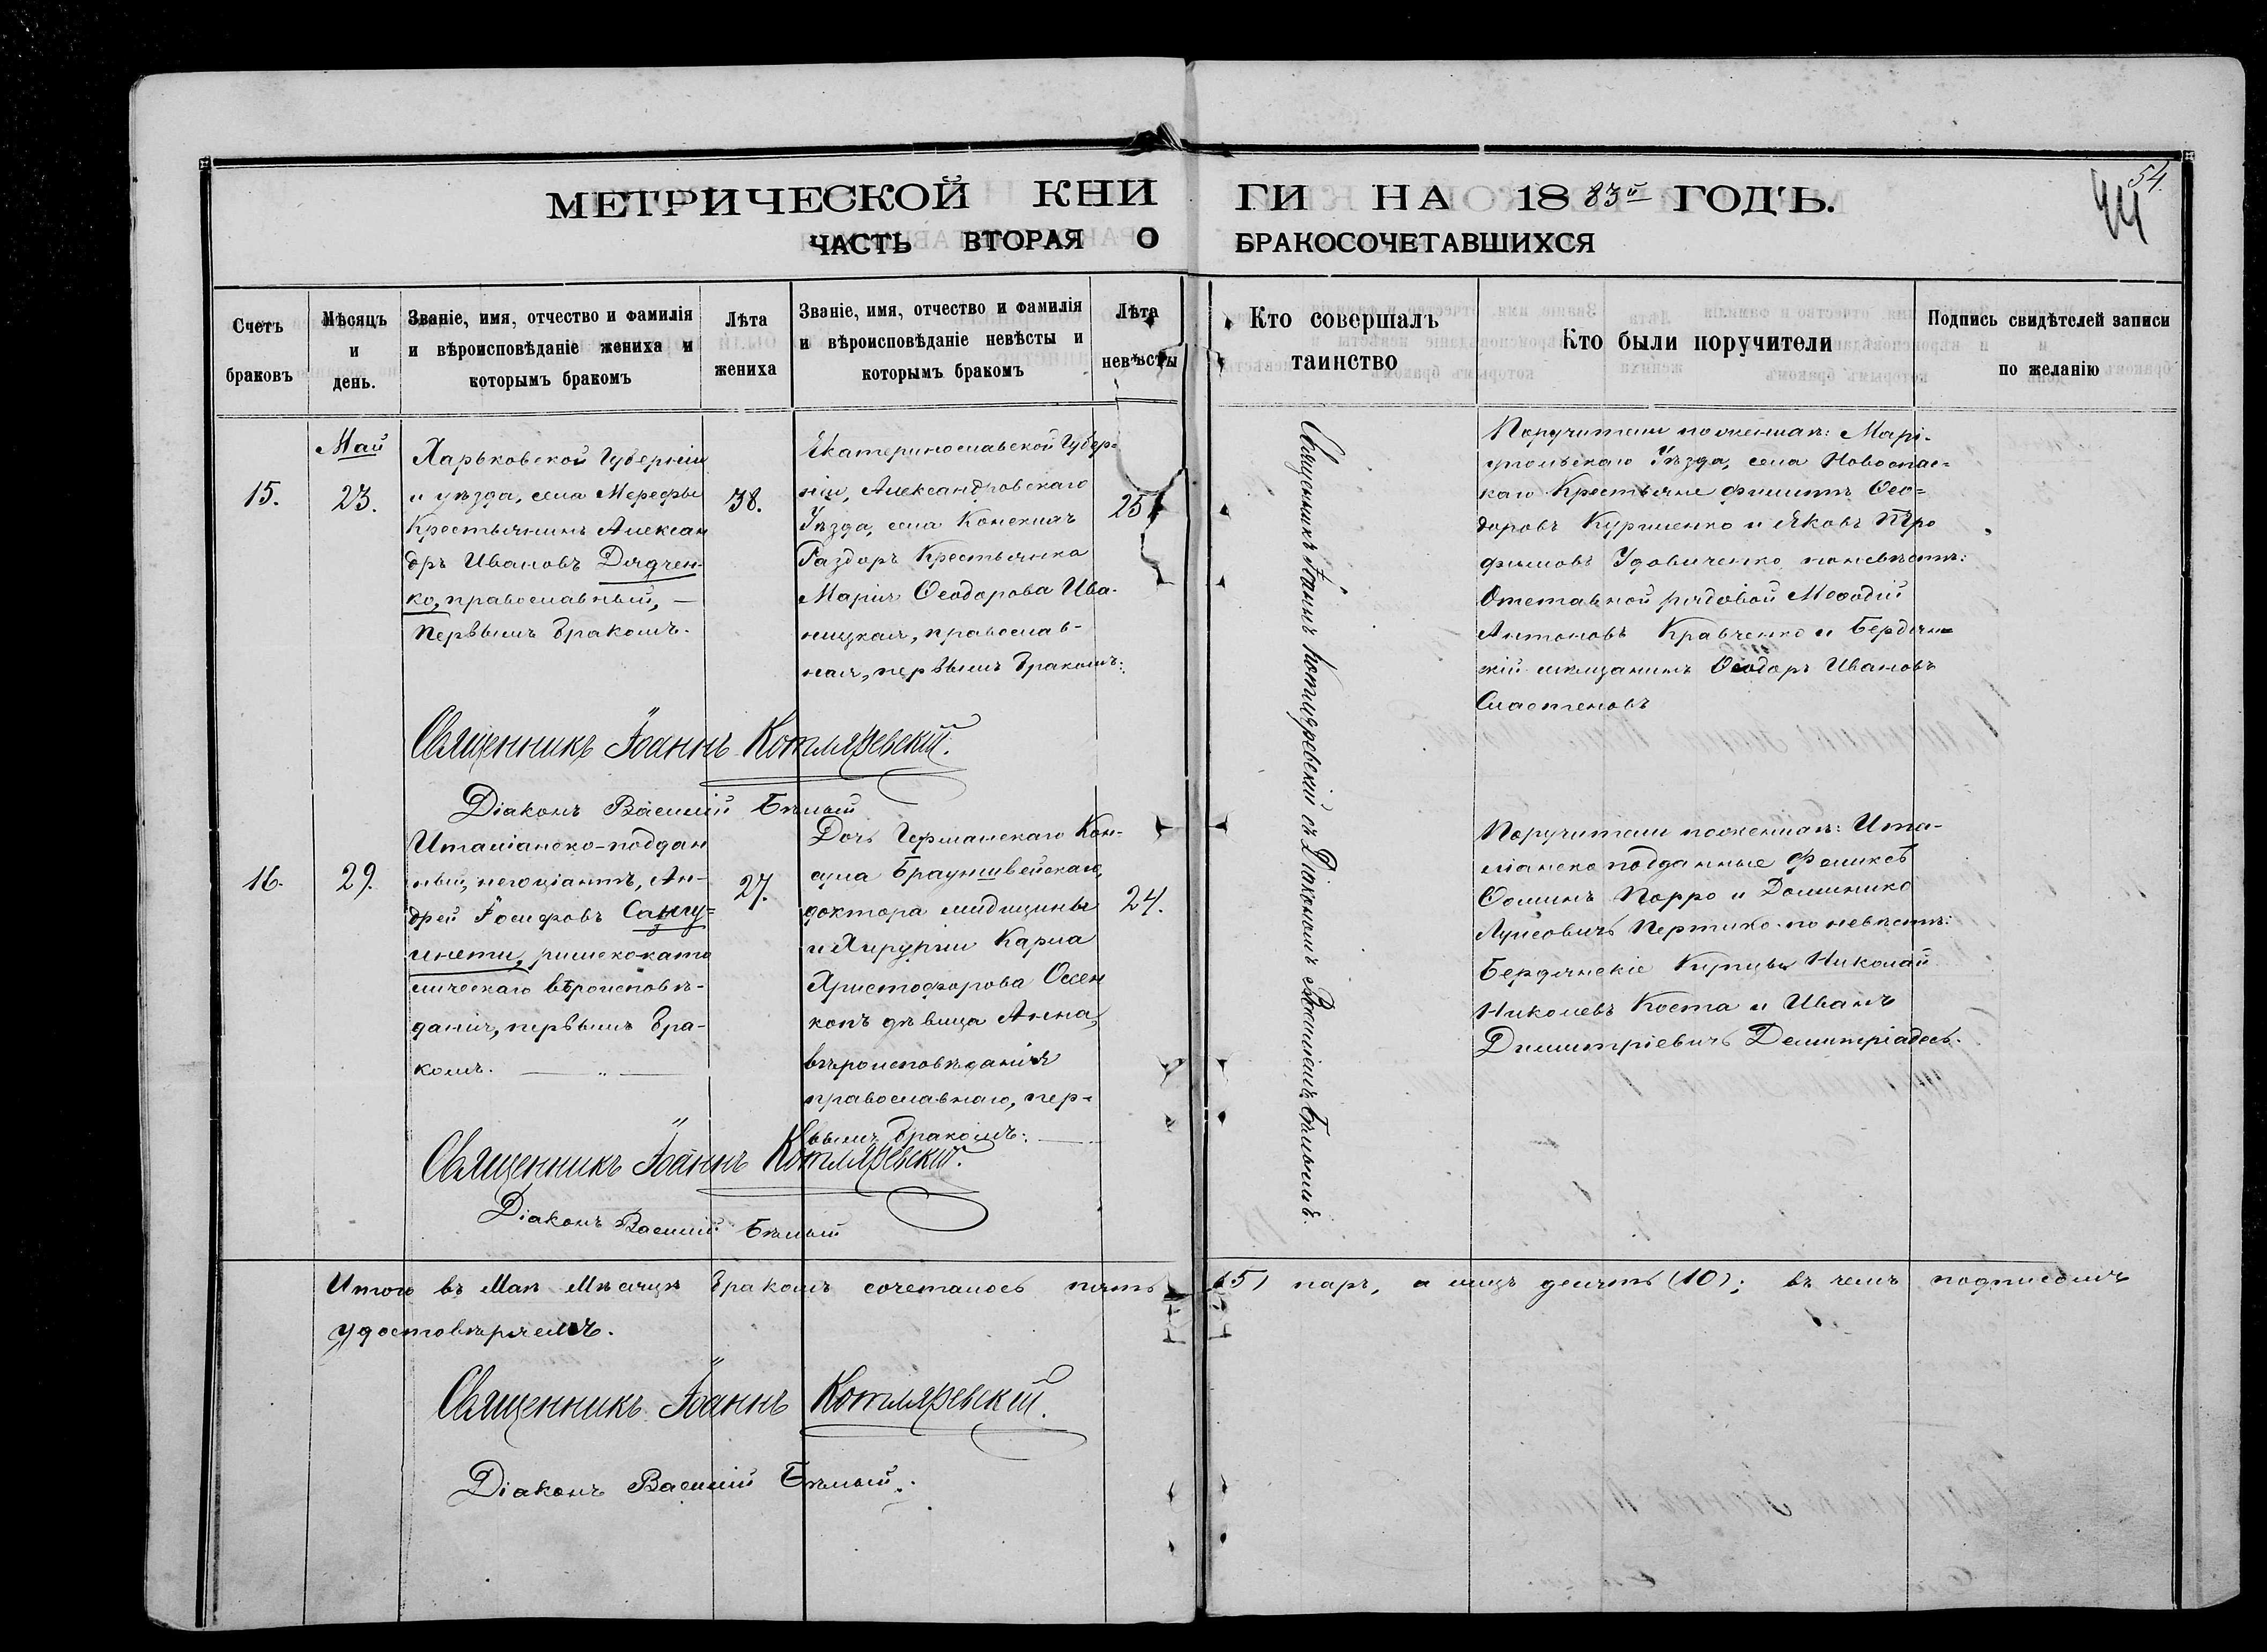 54.
44
МЕТРИЧЕСКОЙ КНИ
ГИ НА 1883й ГОДЪ.
ЧАСТЬ ВТОРАЯ О
БРАКОСОЧЕТАВШИХСЯ
Счетъ
браковъ
Мѣсяцъ
и
день.
Званіе, имя, отчество и фамилія
и вѣроисповѣданіе жениха и
которымъ бракомъ
Лѣта
жениха
Званіе, имя, отчество и фамилія
и вѣроисповѣданіе невѣсты и
которымъ бракомъ
Лѣта
невѣсты
Кто совершалъ
таинство
Кто были поручители
Подпись свидѣтелей записи
по желанію
15.
Май
23.
Харьковской Губерніи
и уѣзда, села Мерефы
Крестьянинъ Алексан
дръ Ивановъ Дядчен-
ко, православный, —
первымъ бракомъ.
38.
Екатеринославской Губер=
ніи, Александровскаго
Уѣзда, села Конскихъ
Раздоръ Крестьянка
Марія Ѳеодорова Ива-
ницкая, православ-
ная, первымъ бракомъ:
25
Священникъ Іоаннъ Котляревскій съ Діакономъ Василіемъ Бѣлымъ.
Поручители по женихѣ: Марі-
упольскаго Уѣзда, села Новоспас=
каго Крестьяне Филиппъ Ѳео=
доровъ Куриленко и Яковъ Тро
фимовъ Удовиченко, по невѣстѣ:
Отставной рядовой Меѳодій
Антоновъ Кравченко и Бердян=
скій мѣщанинъ Ѳеодоръ Ивановъ
Сластеновъ
Священникъ Іоаннъ Котляревскій.
Діаконъ Василій Бѣлый
16.
29.
Италіанско-поддан
ный, негоціантъ, Ан-
дрей Іосифовъ Сангу=
инети, римскокато
лическаго вѣроисповѣ-
данія, первымъ бра-
комъ.
27.
Дочь Германскаго Кон-
сула Брауншвейскаго,
доктора медицины
и Хирургіи Карла
Христофорова Оссен
копъ дѣвица Анна,
вѣроисповѣданія
православнаго, пер-
вымъ бракомъ:
24.
Поручители по женихѣ: Ита-
ліанско подданные Феликсъ
Ѳоминъ Порро и Доминико
Луисовичъ Пертико. по невѣстѣ:
Бердянскіе Купцы Николай
Николевъ Коста и Иванъ
Димитріевичъ Деметріадесъ.
Священникъ Іоаннъ Котляревскій.
Діаконъ Василій Бѣлый
Итого въ Маѣ Мѣсяцѣ бракомъ сочеталось пять (5) паръ, а лицъ десять (10); въ чемъ подписомъ
удостовѣряемъ.
Священникъ Іоаннъ Котляревскій.
Діаконъ Василій Бѣлый.